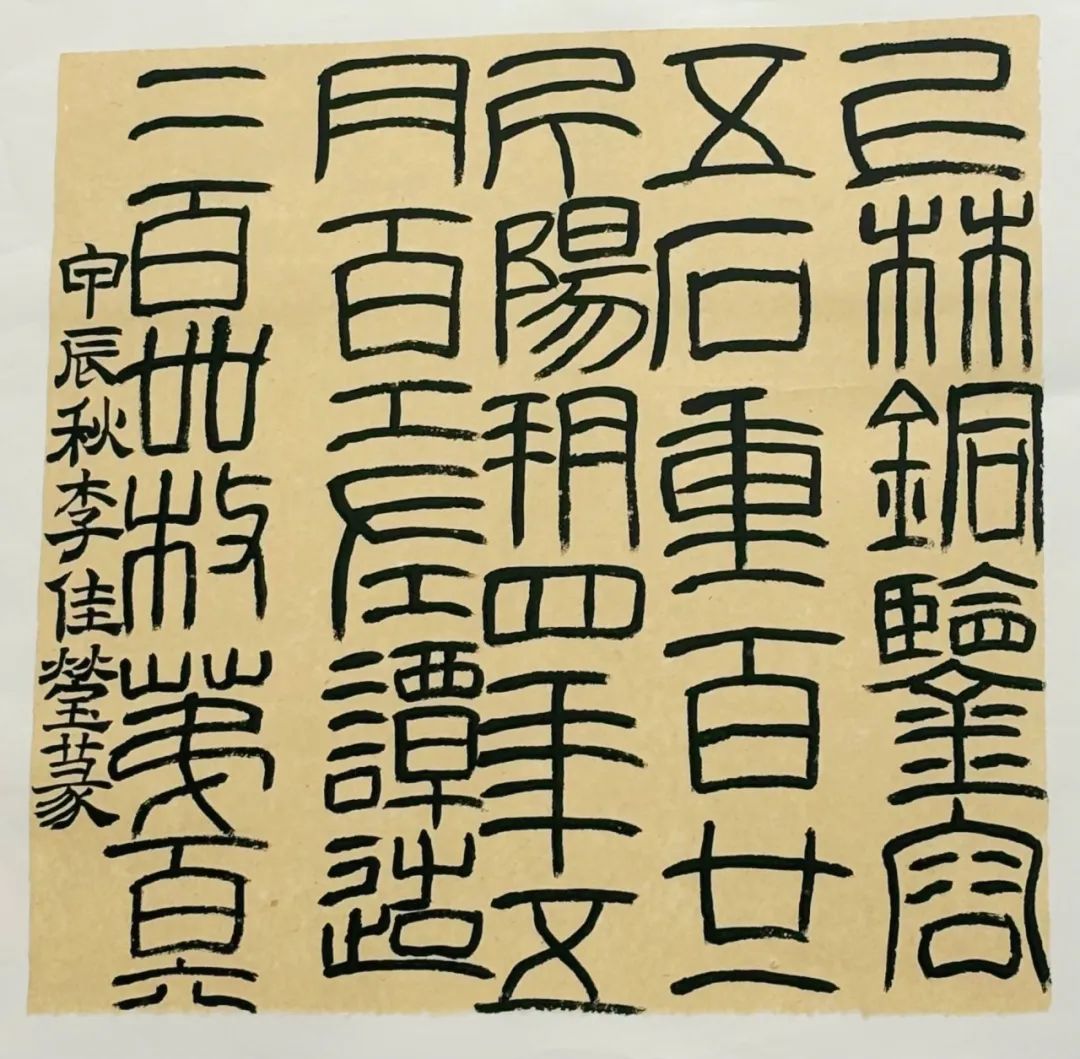 上林銅鑒容
五石重百廿一
斤陽朔四年五
月百工左譚造
二百卌枚第百六
甲辰秋李佳瑩篆